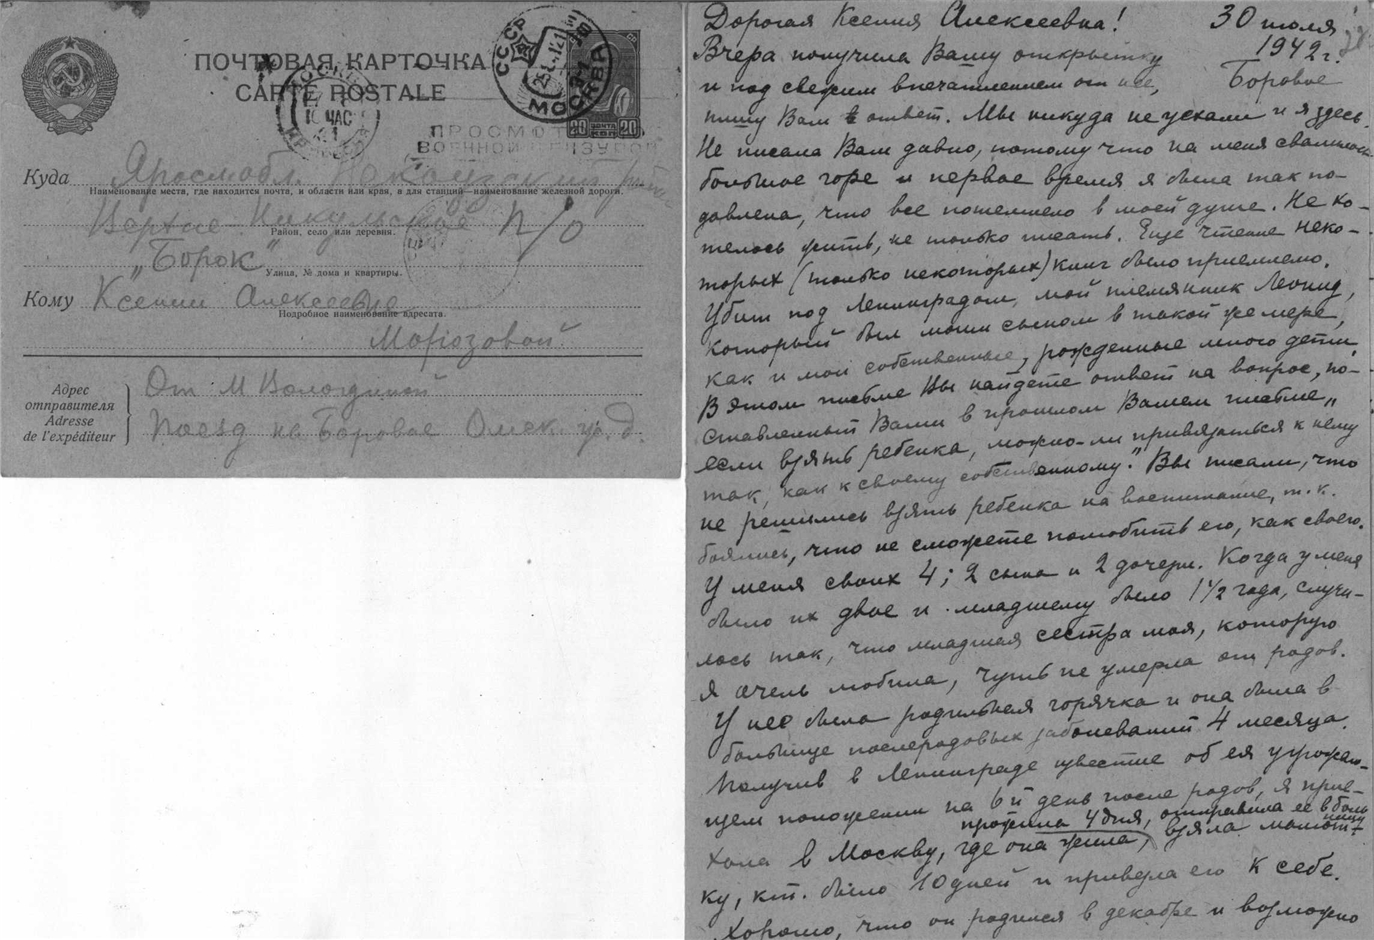 ПОЧТОВАЯ КАРТОЧКА
CARTE POSTALE
СССР
МОСКВА
20 ПОЧТА КОП 20
ПРОСМОТРЕНО
ВОЕННОЙ ЦЕНЗУРОЙ
Куда Яросл. обл. Некоузский район
Наименование места, где находится почта, и области или края, а для станций—наименование железной дороги.
Верхне-Никульское п/о
Район, село или деревня.
"Борок"
Улица, № дома и квартиры.
Кому Ксении Алексеевне
Подробное наименование адресата.
Морозовой.
Адрес отправителя
Adresse de l'expéditeur
От М Вологдиной
Поезд на Боровое Омск. ж. д.
Дорогая Ксения Алексеевна! 30 июля
1942 г.
Вчера получила Вашу открытку
и под свежим впечатлением от нее, Боровое
пишу Вам в ответ. Мы никуда не уехали и я здесь.
Не писала Вам давно, потому что на меня свалилось
большое горе и первое время я была так по-
давлена, что все потемнело в моей душе. Не хо-
телось жить, не только писать. Еще чтение неко-
торых (только некоторых) книг было приемлемо.
Убит под Ленинградом, мой племянник Леонид,
который был моим сыном в такой же мере,
как и мои собственные, рожденные мною дети,
В этом письме Вы найдете ответ на вопрос, по-
ставленный Вами в прошлом Вашем письме „
если взять ребенка, можно-ли привязаться к нему
так, как к своему собственному." Вы писали, что
не решились взять ребенка на воспитание, т.к.
боялись, что не сможете полюбить его, как своего.
У меня своих 4; 2 сына и 2 дочери. Когда у меня
было их двое и младшему было 1½ года, случи-
лось так, что младшая сестра моя, которую
я очень любила, чуть не умерла от родов.
У нее была родильная горячка и она была в
больнице послеродовых заболеваний 4 месяца.
Получив в Ленинграде известие об ея угрожаю-
щем положении на 6й день после родов, я прие-
прожила 4 дня, отправила ее в боль
ницу
хала в Москву, где она жила, взяла малют-
ку, кт. было 10 дней и привезла его к себе.
Хорошо, что он родился в декабре и возможно